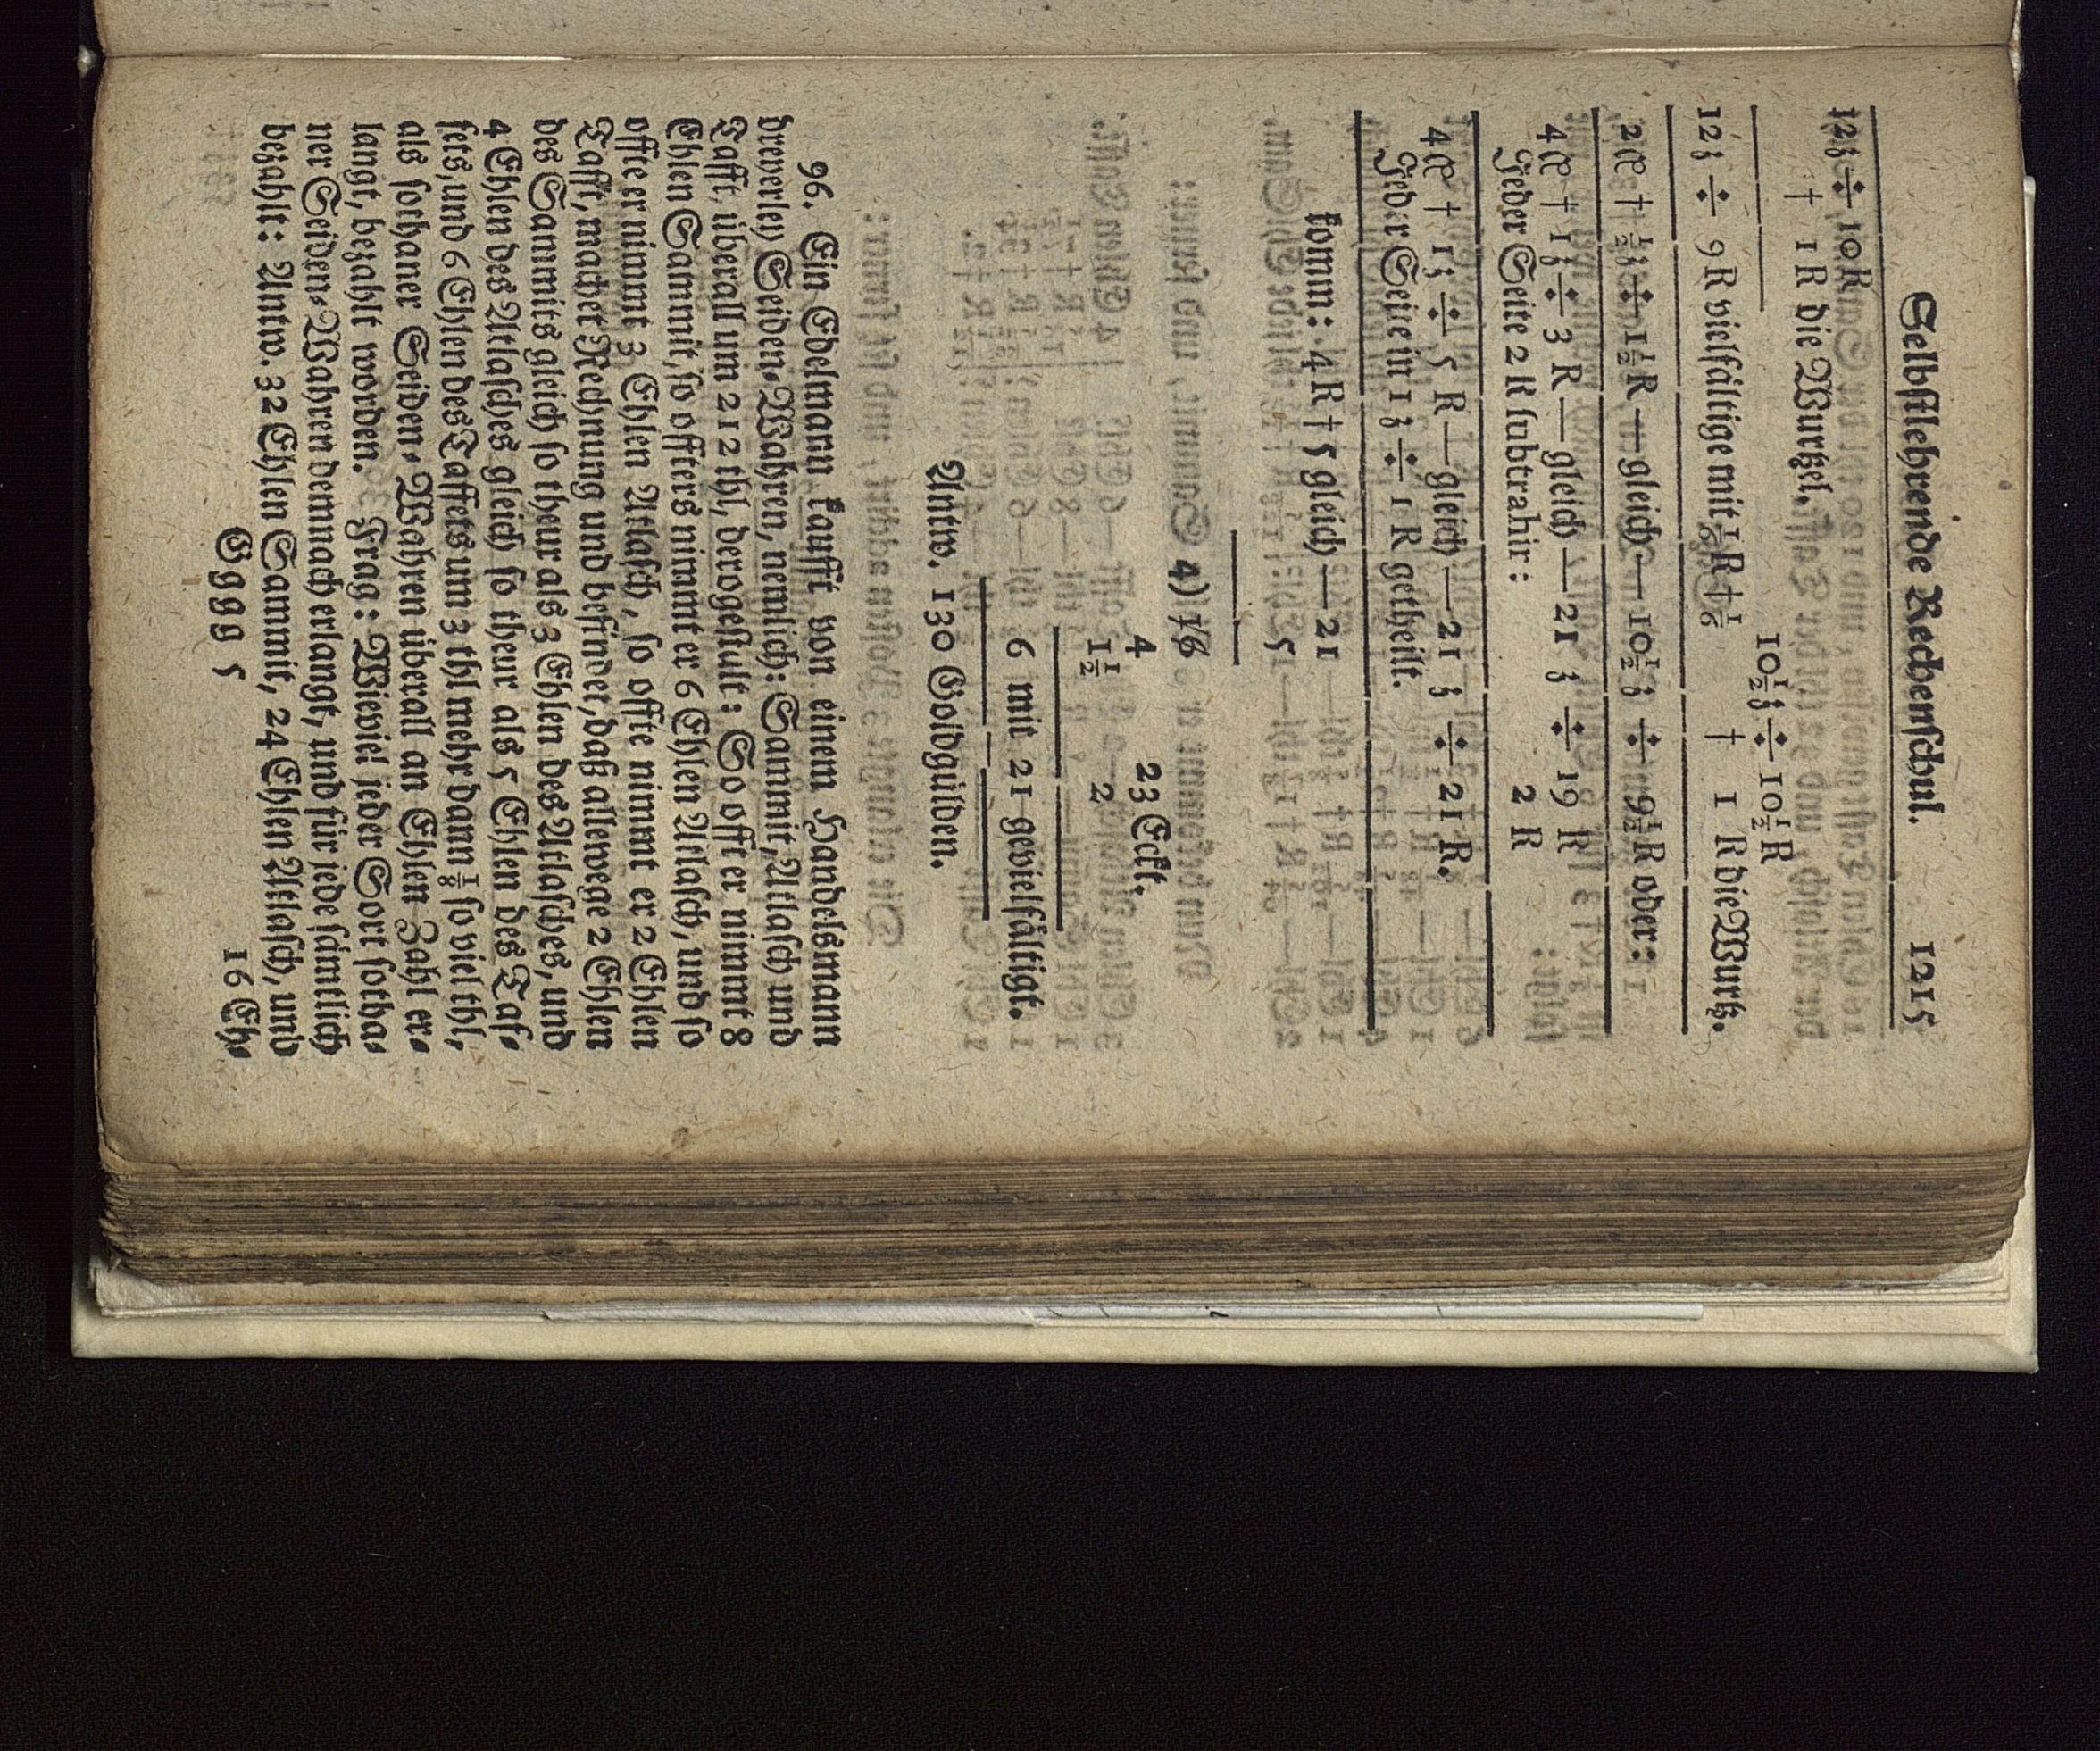 Selbſtlehrende Rechenſchul. 1215
12ʒ ÷ 10R 10½ʒ ÷ 10½R
† 1R die Wurtzel. † 1 R die Wurtz.
12ʒ ÷ 9R vielfältige mit ⅙R † ⅙
2 † ½ʒ ÷ 1½R — gleich — 10½ʒ ÷ 9½R oder:
4 † 1ʒ ÷ 3 R — gleich — 21 ʒ ÷ 19 R
Jeder Seite 2 R ſubtrahir: 2 R
4 † 1ʒ ÷ 5 R — gleich — 21 ʒ ÷ 21 R.
Jeder Seite in 1 ʒ ÷ 1 R getheilt.
komm: 4R † 5 gleich — 21
5
4) 16
4 23 Eckt.
1½ 2
6 mit 21 gevielfältigt.
Antw. 130 Goldgülden.
96. Ein Edelmann kaufft von einem Handelsmann
dreyerley Seiden-Wahren, nemlich: Sammit, Atlaſch und
Tafft, überall um 212 thl, dergeſtalt: So offt er nimmt 8
Ehlen Sammit, ſo offters nimmt er 6 Ehlen Atlaſch, und ſo
offte er nimmt 3 Ehlen Atlaſch, ſo offte nimmt er 2 Ehlen
Tafft, machet Rechnung und befindet, daß allewege 2 Ehlen
des Sammits gleich ſo theur als 3 Ehlen des Atlaſches, und
4 Ehlen des Atlaſches gleich ſo theur als 5 Ehlen des Taf-
fets, und 6 Ehlen des Taffets um 3 thl mehr dann ⅛ ſo viel thl,
als ſothaner Seiden-Wahren überall an Ehlen-Zahl er-
langt, bezahlt worden. Frag: Wieviel jeder Sort ſotha-
ner Seiden-Wahren demnach erlangt, und für jede ſämtlich
bezahlt: Antw. 32 Ehlen Sammit, 24 Ehlen Atlaſch, und
Gggg 5 16 Eh-